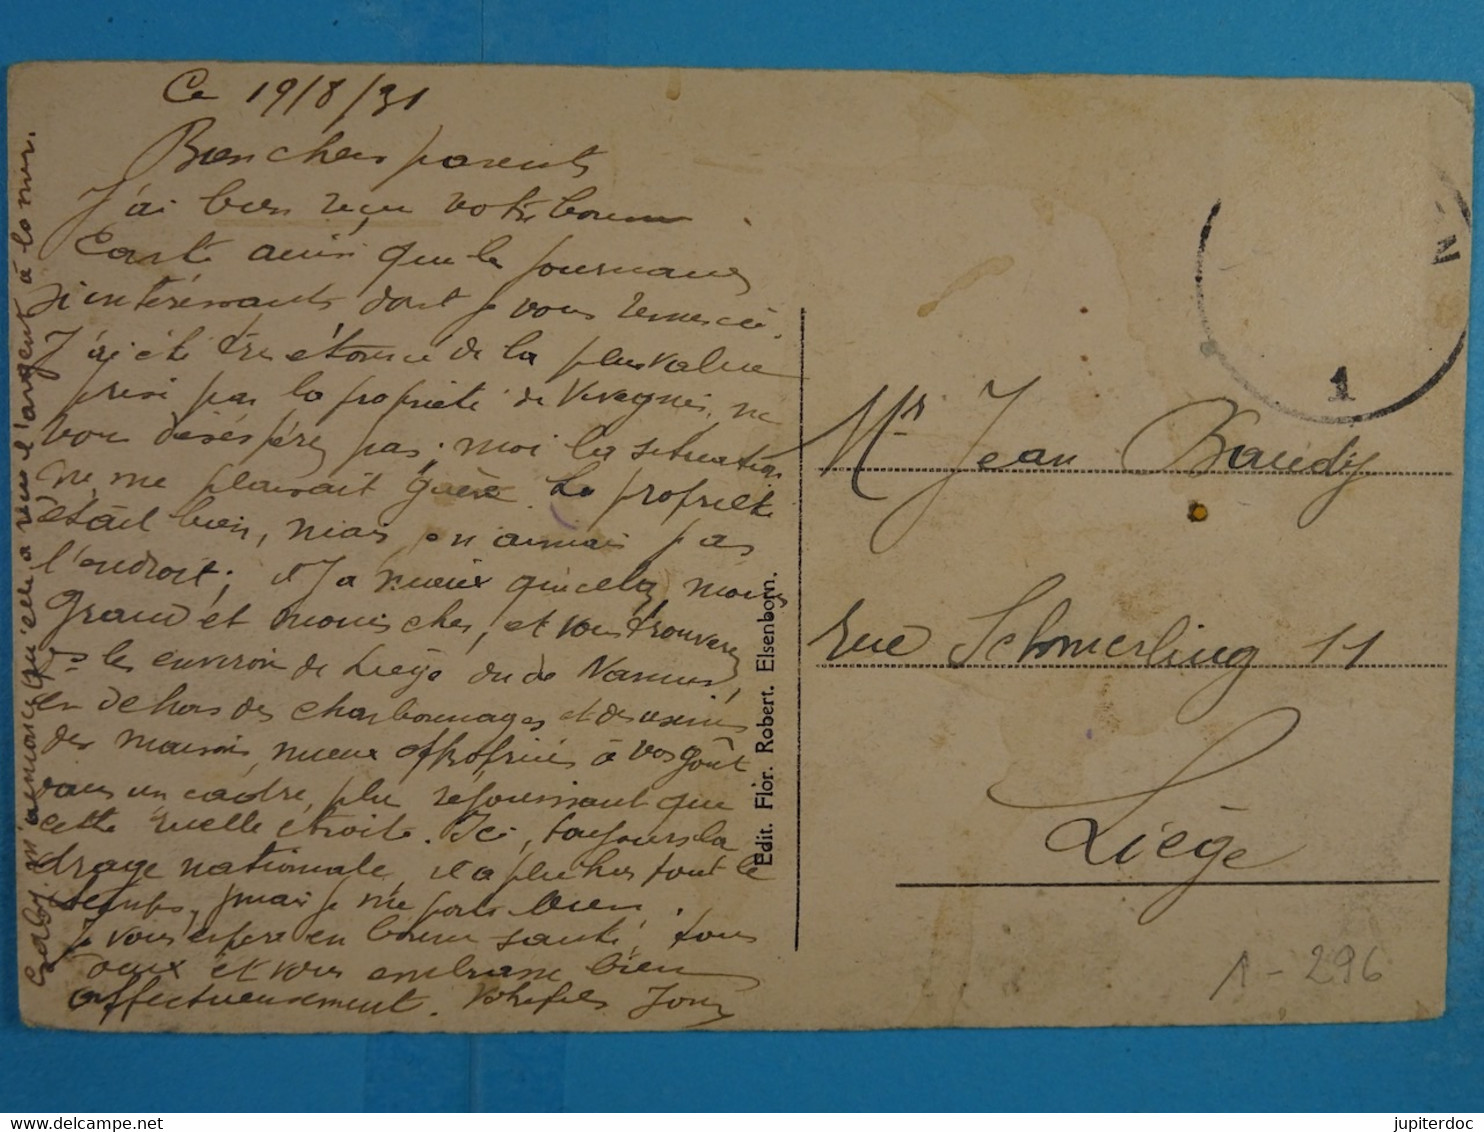 Ce 19/8/31
Bien chers parents
J'ai bien reçu votre bonne
Carte ainsi que les journaux
si intéressants dont je vous remercie.
J'ai été très étonné de la plus value
prise par la propriété de ne
vous désespérez pas; moi la situation
ne me plaisait guère La propriété
était bien, mais n'aimais pas
l'endroit; il y a mieux que cela, moins
grand et moins cher, et vous trouverez
ds les environ de Liège ou de Namur,
en dehors des charbonnages et des usines
des maisons, mieux appropriées à vos goût
dans un cadre, plus réjouissant que
cette ruelle étroite. Ici, toujours la
drage nationale, il a plu hes tout le
temps, mais je me porte bien.
Je vous espère en bonne santé, tous
deux et vous embrasse bien
affectueusement. Votre fils Jony
Gaby m'annonce qu'elle a reçu l'argent à la mer.
Edit. Flor. Robert. Elsenborn.
N
1
Mr Jean Baudy
rue Schmerling 11
Liège
1-296
delcampe.net
jupiterdoc